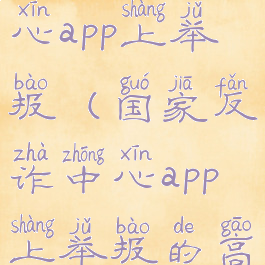 xīn shàng jǔ
心app上举
bào guó jiā fǎn
报(国家反
zhà zhōng xīn
诈中心app
shàng jǔ bào de gāo
上举报的高